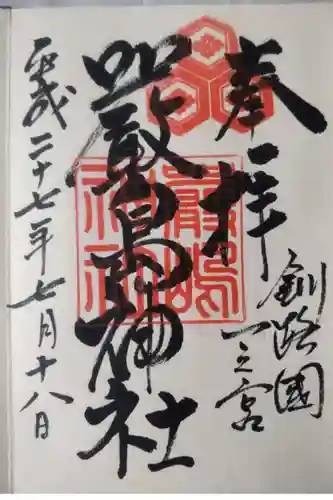 奉拝
釧路國
一之宮
厳島神社
嚴嶋
神社
平成二十七年七月十八日